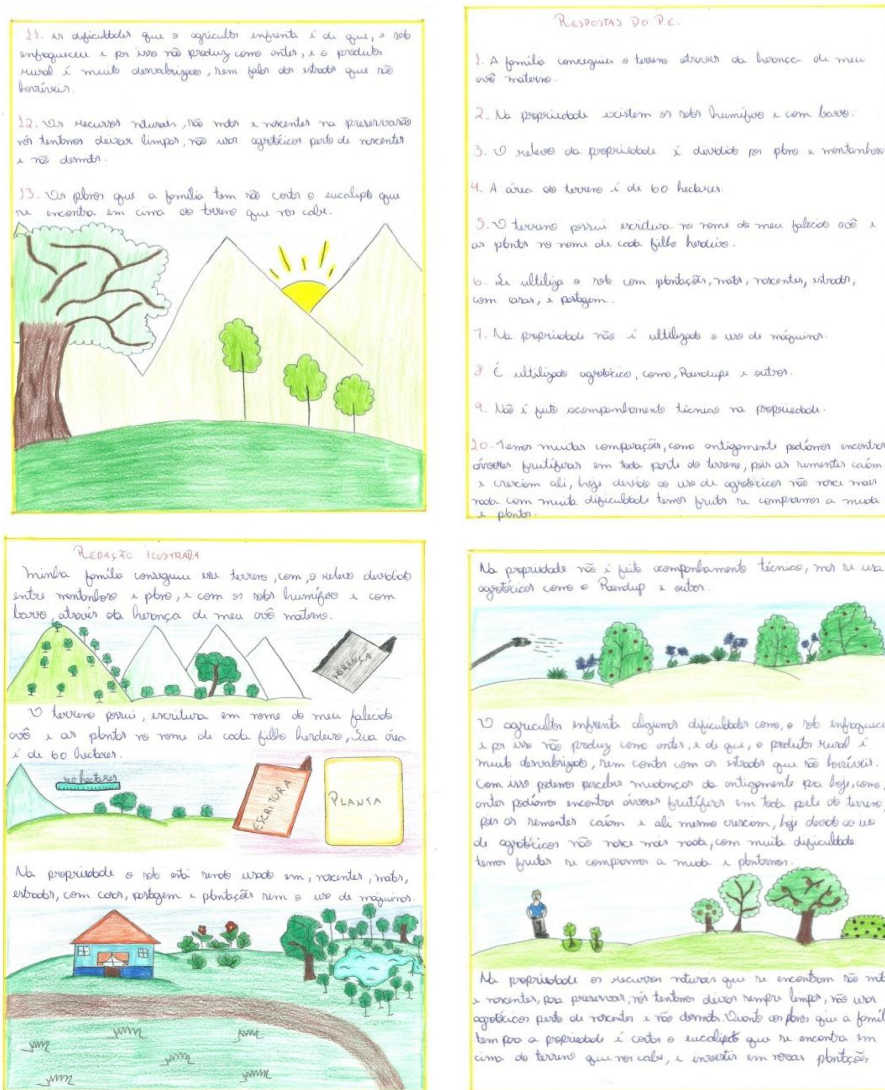 11. As dificuldades que o agricultor enfrenta é de que, o solo
enfraqueceu e por isso não produz como antes, e o produto
rural é muito desvalorizado, sem falar das estradas que são
horríveis.
12. Os recursos naturais, são matas e nascentes na preservação
nós tentamos deixar limpas, não usar agrotóxicos perto de nascentes
e não desmatar.
13. Os planos que a família tem são cortar o eucalipto que
se encontra em cima do terreno que nos cabe.
RESPOSTAS DO P.E.
1. A família conseguiu o terreno através da herança de meu
avô materno.
2. Na propriedade existem os solos humífero e com barro.
3. O relevo da propriedade é devidido por plano e montanhoso
4. A área do terreno é de 60 hectares.
5. O terreno possui escritura no nome do meu falecido avô e
as plantas no nome de cada filho herdeiro.
6. Se ultiliza o solo com plantações, matas, nascentes, estradas,
com casas, e pastagem.
7. Na propriedade não é ultilizado o uso de máquinas.
8. É ultilizado agrotóxico, como, Raendupe e outros.
9. Não é feito acompanhamento técnico na propriedade.
10. Temos muitas comparações, como antigamente podíamos encontrar
árvores frutíferas em toda parte do terreno, pois as sementes caíam
e cresciam ali, hoje devido ao uso de agrotóxicos não nasce mais
nada com muita dificuldade temos frutas se compramos a muda
e plantar.
REDAÇÃO ILUSTRADA
Minha família conseguiu esse terreno, com, o relevo devidido
entre montanhoso e plano, e com os solos humífero e com
barro, através da herança de meu avô materno.
HERANÇA
O terreno possui, escritura em nome do meu falecido
avô e as plantas no nome de cada filho herdeiro, Sua área
é de 60 hectares.
60 hectares
ESCRITURA
PLANTA
Na propriedade o solo está sendo usado em, nascentes, matas,
estradas, com casas, pastagem e plantações sem o uso de máquinas.
Na propriedade não é feito acompanhamento técnico, mas se usa
agrotóxicos como o Raendup e outros.
O agricultor enfrenta algumas dificuldades como, o solo enfraqueceu
e por isso não produz como antes, e de que, o produto rural é
muito desvalorizado, sem contar com as estradas que são horríveis.
Com isso podemos perceber mudanças de antigamente pra hoje, como,
antes podíamos encontrar árvores frutíferas em toda parte do terreno,
pois as sementes caíam e ali mesmo cresciam, hoje devido ao uso
de agrotóxicos não nasce mais nada, com muita dificuldade
temos frutas se compramos a muda e plantamos.
Na propriedade os recursos naturais que se encontram são matas
e nascentes, para preservar, nós tentamos deixar sempre limpas, não usar
agrotóxicos perto de nascentes e não desmatar. Quanto aos planos que a família
tem para a propriedade é cortar o eucalipto que se encontra em
cima do terreno que nos cabe, e investir em novas plantações.